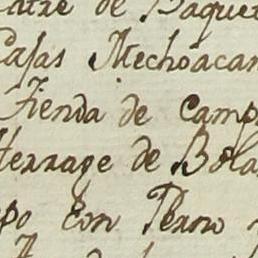 Catre de Baquet
Casas Mechoacan
Tienda de Camp
Herrage de Bola
po con Perno